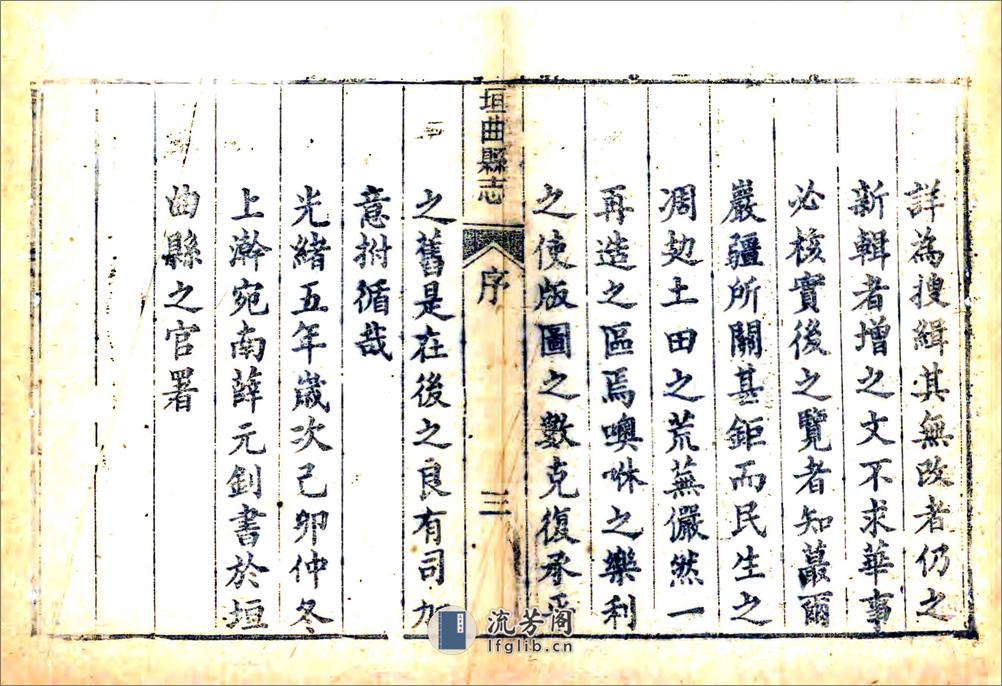 詳為搜緝其無改者仍之
新輯者增之文不求華事
必核實後之覽者知蕞爾
嚴疆所關甚鉅而民生之
凋攰土田之荒蕪儼然一
再造之區焉噢咻之樂利
之使版圖之數克復承平
垣曲縣志
序
三
之舊是在後之良有司加
意拊循哉
光緒五年歲次己卯仲冬
上澣宛南薛元釗書於垣
曲縣之官署
流芳阁
lfglib.cn